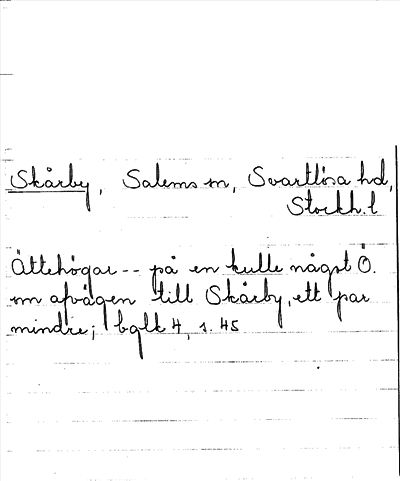 Skårby, Salems sn, Svartlösa hd,
Stockh. l
Ättehögar -- på en kulle något Ö.
om afvägen till Skårby, ett par
mindre; bglk 4, s. 45